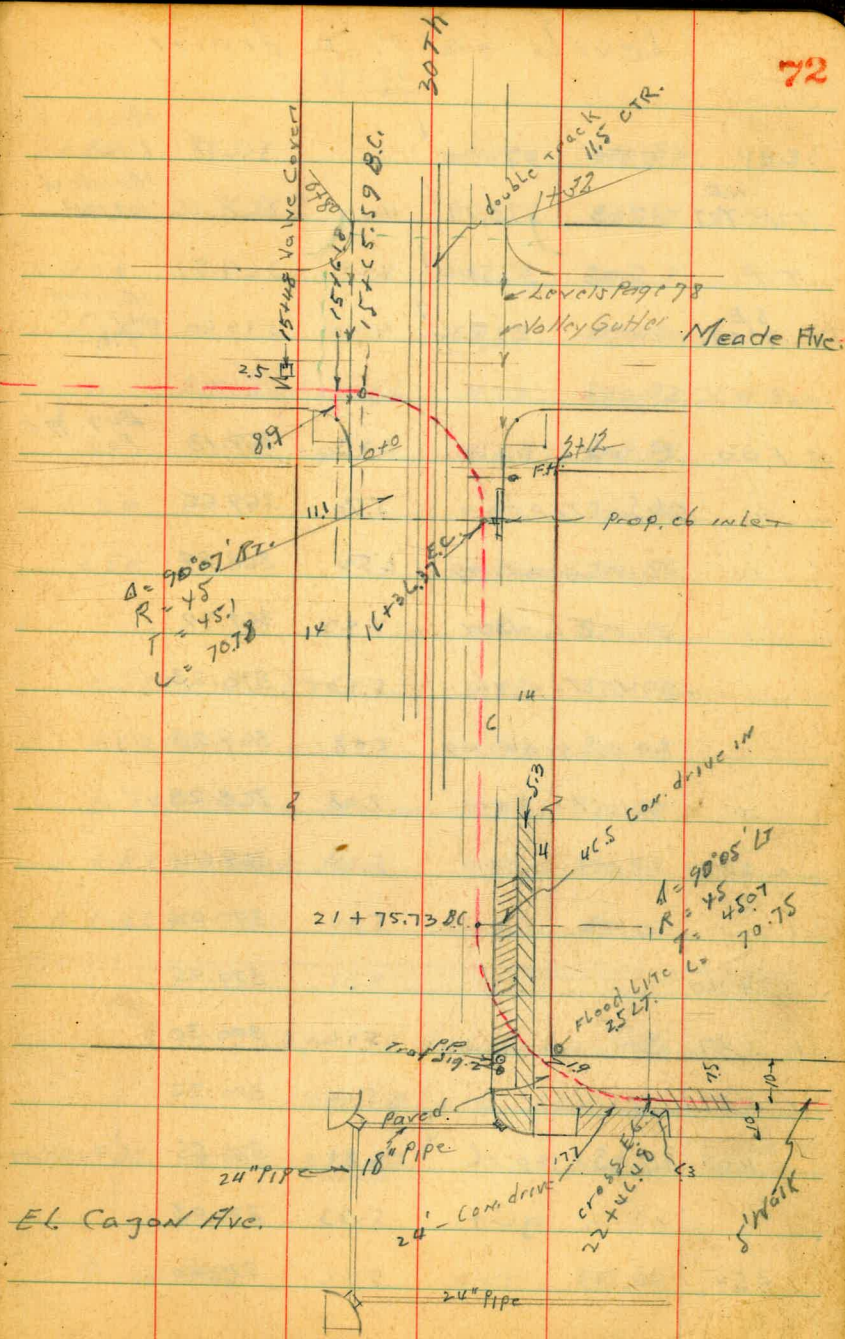 72
30TH
double track
11.5 CTR.
1+32
15+48 Valve Cover
15+61.8
15+65.59 B.C.
Levels Page 78
Valley Gutter
Meade Ave.
2.5
8.9
0+0
2+12
F.H.
Prop. cb inlet
11.1
16+36.37 E.C.
Δ = 90°07' RT.
R = 45
T = 45.1
L = 70.78
14
14
6
5.3
46.5 Con. drive in
4
Δ = 90°05' LT
R = 45
T = 45.07
L = 70.75
21 + 75.73 B.C.
Flood Lite
25 LT.
P.P.
Traf Sig.
1.9
7.5
10
10
Paved.
18" Pipe
24" Pipe
24' Con. drive
17.7
cross E.C.
22+46.48
63
5' Walk
El Cagon Ave.
24" Pipe